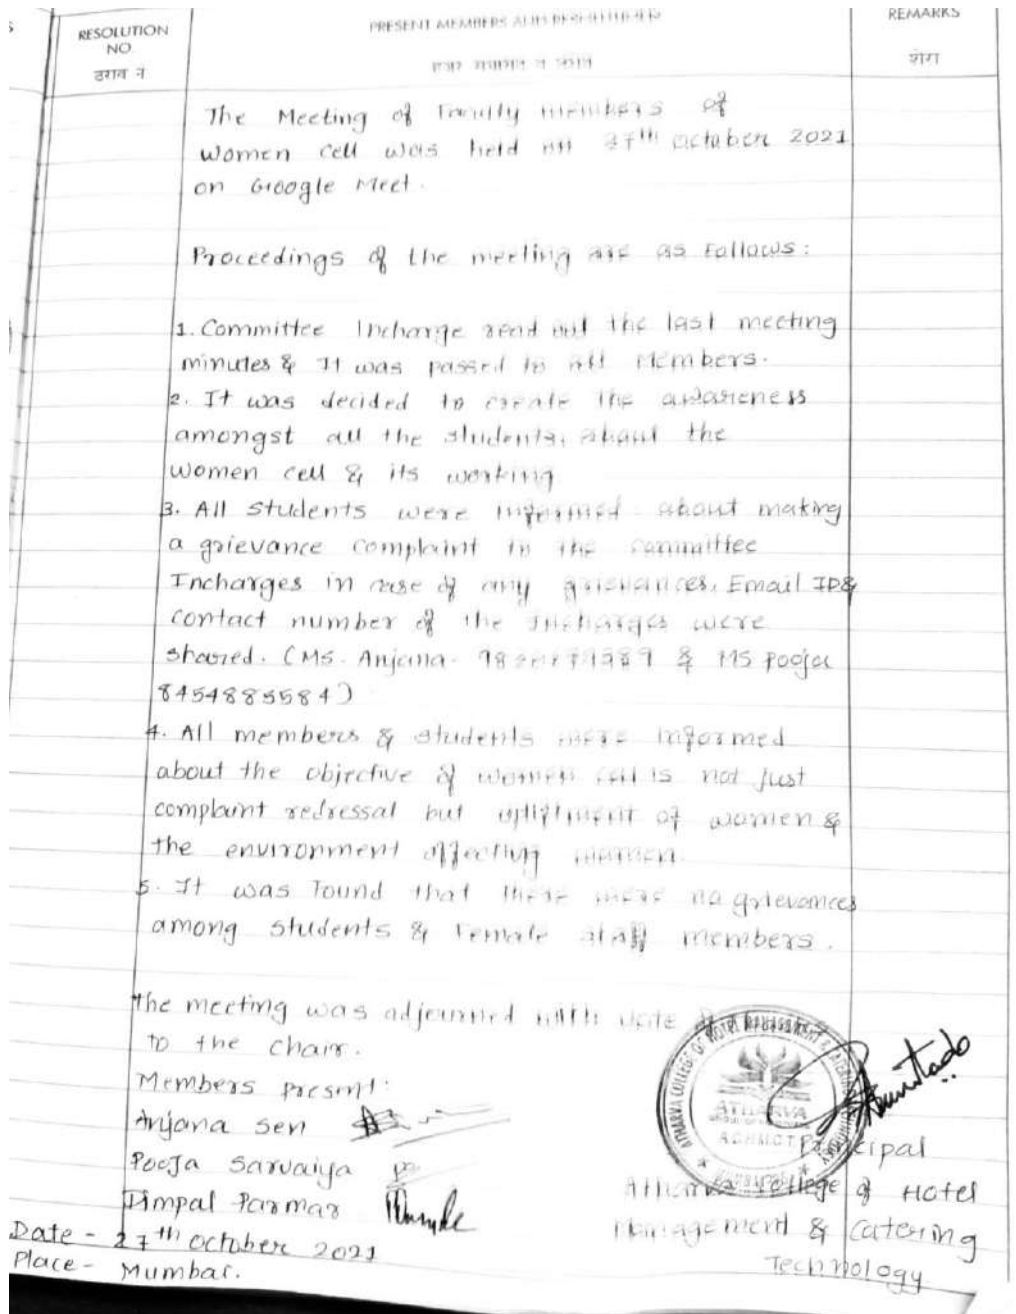 RESOLUTION
NO.
ठराव नं
PRESENT MEMBERS AND RESOLUTIONS
REMARKS
शेरा
The Meeting of Faculty members of
Women cell was held on 27th October 2021
on Google Meet.
Proceedings of the meeting are as follows:
1. Committee Incharge read out the last meeting
minutes & It was passed to all Members.
2. It was decided to create the awareness
amongst all the students, about the
Women cell & its working
3. All students were informed about making
a grievance complaint to the committee
Incharges in case of any grievances, Email ID&
contact number of the Incharges were
shared. (MS. Anjana- & MS Pooja
8454885584)
4. All members & students were informed
about the objective of women cell is not just
complaint redressal but upliftment of women &
the environment affecting women.
5. It was found that there were no grievances
among students & Female staff members.
The meeting was adjourned with vote of
to the chair.
Members present:
Anjana Sen
Pooja Sarvaiya
Dimpal Parmar
Date - 27th October 2021
Place - Mumbai.
ATHARVA COLLEGE OF HOTEL MANAGEMENT &
ATHARVA
ACHMCT
Principal
Atharva College of Hotel
Management & Catering
Technology